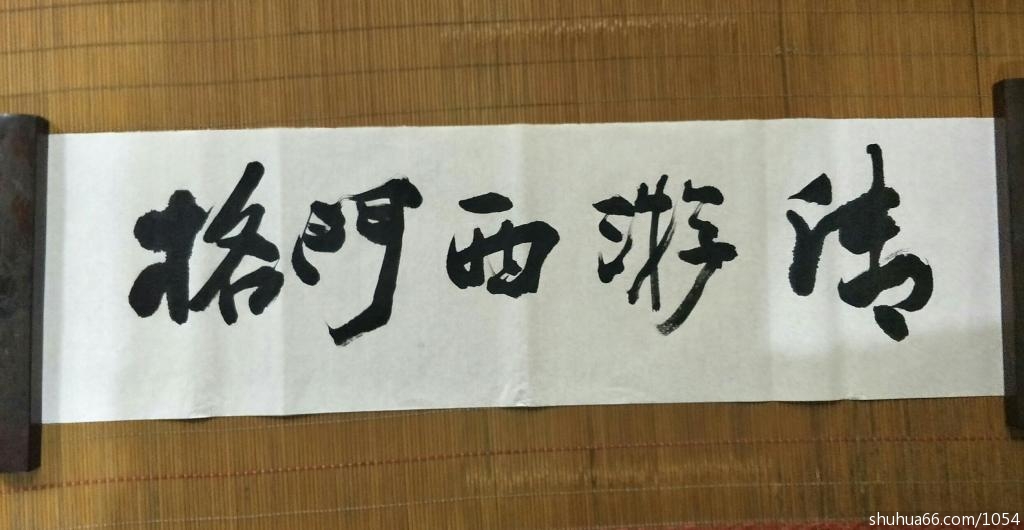 清游西門格
shuhua66.com/1054